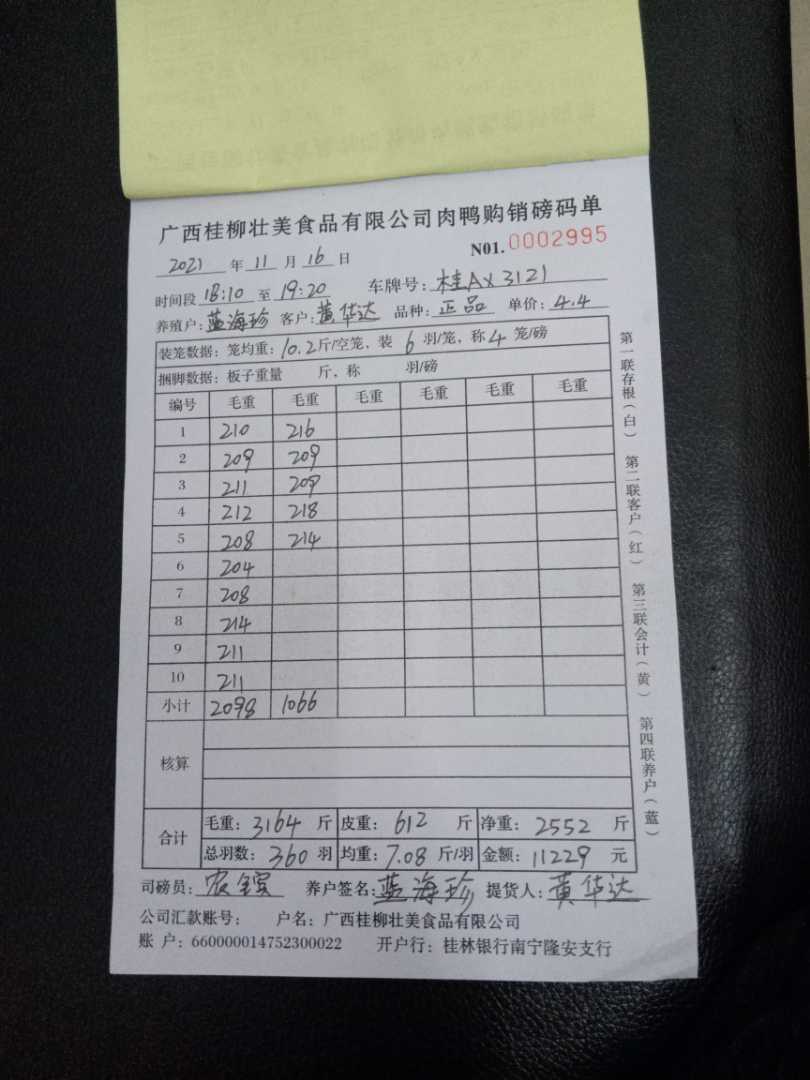 广西桂柳壮美食品有限公司肉鸭购销磅码单
2021 年 11 月 16 日 N01. 0002995
时间段 18:10 至 19:20 车牌号: 桂AX3121
养殖户: 蓝海珍 客户: 黄华达 品种: 正品 单价: 4.4
装笼数据: 笼均重: 10.2斤/空笼, 装 6 羽/笼, 称 4 笼/磅
捆脚数据: 板子重量 斤, 称 羽/磅
编号 毛重 毛重 毛重 毛重 毛重 毛重
1 210 216
2 209 209
3 211 209
4 212 218
5 208 214
6 204
7 208
8 214
9 211
10 211
小计 2098 1066
核算
合计 毛重: 3164 斤 皮重: 612 斤 净重: 2552 斤
总羽数: 360 羽 均重: 7.08 斤/羽 金额: 11229 元
司磅员: 农 养户签名: 蓝海珍 提货人: 黄华达
公司汇款账号: 户名: 广西桂柳壮美食品有限公司
账 户: 660000014752300022 开户行: 桂林银行南宁隆安支行
第一联存根(白) 第二联客户(红) 第三联会计(黄) 第四联养户(蓝)